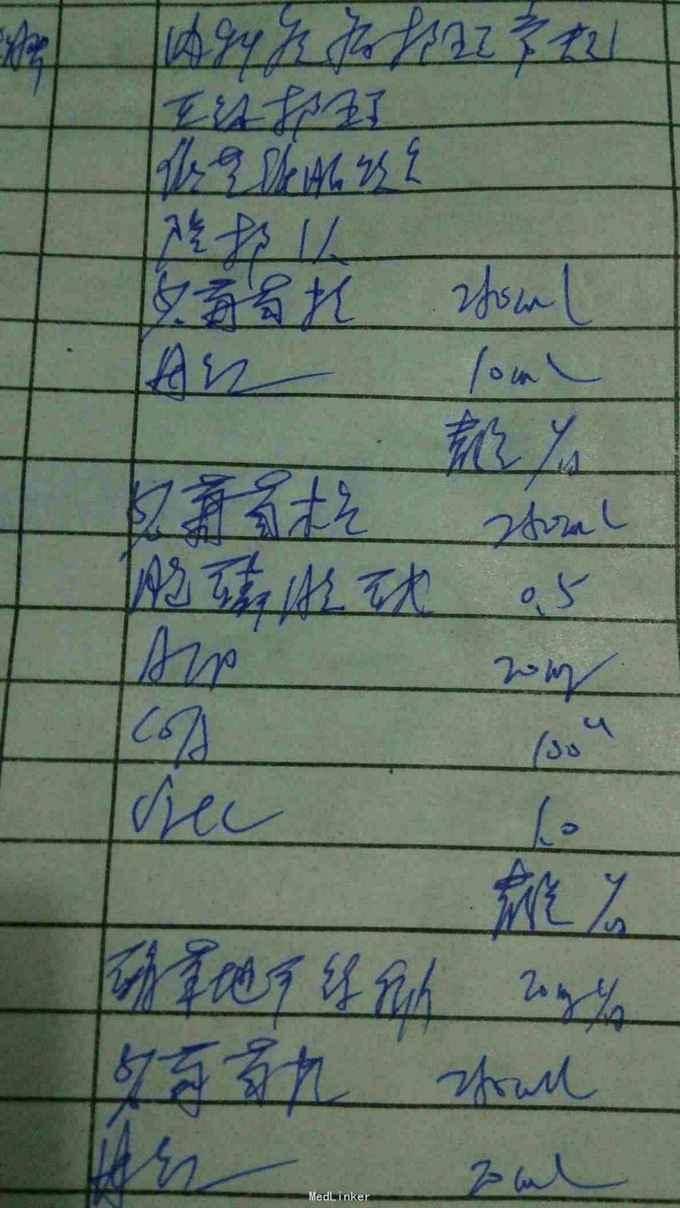 内科疾病护理常规
二级护理
低盐低脂饮食
陪护1人
5%葡萄糖 250ml
丹红 10ml
静滴 1/日
5%葡萄糖 250ml
胞磷胆碱 0.5
ATP 20mg
CoA 100u
VitC 1.0
静滴 1/日
硝苯地平缓释片 20mg 1/日
5%葡萄糖 250ml
丹红 20ml
MedLinker